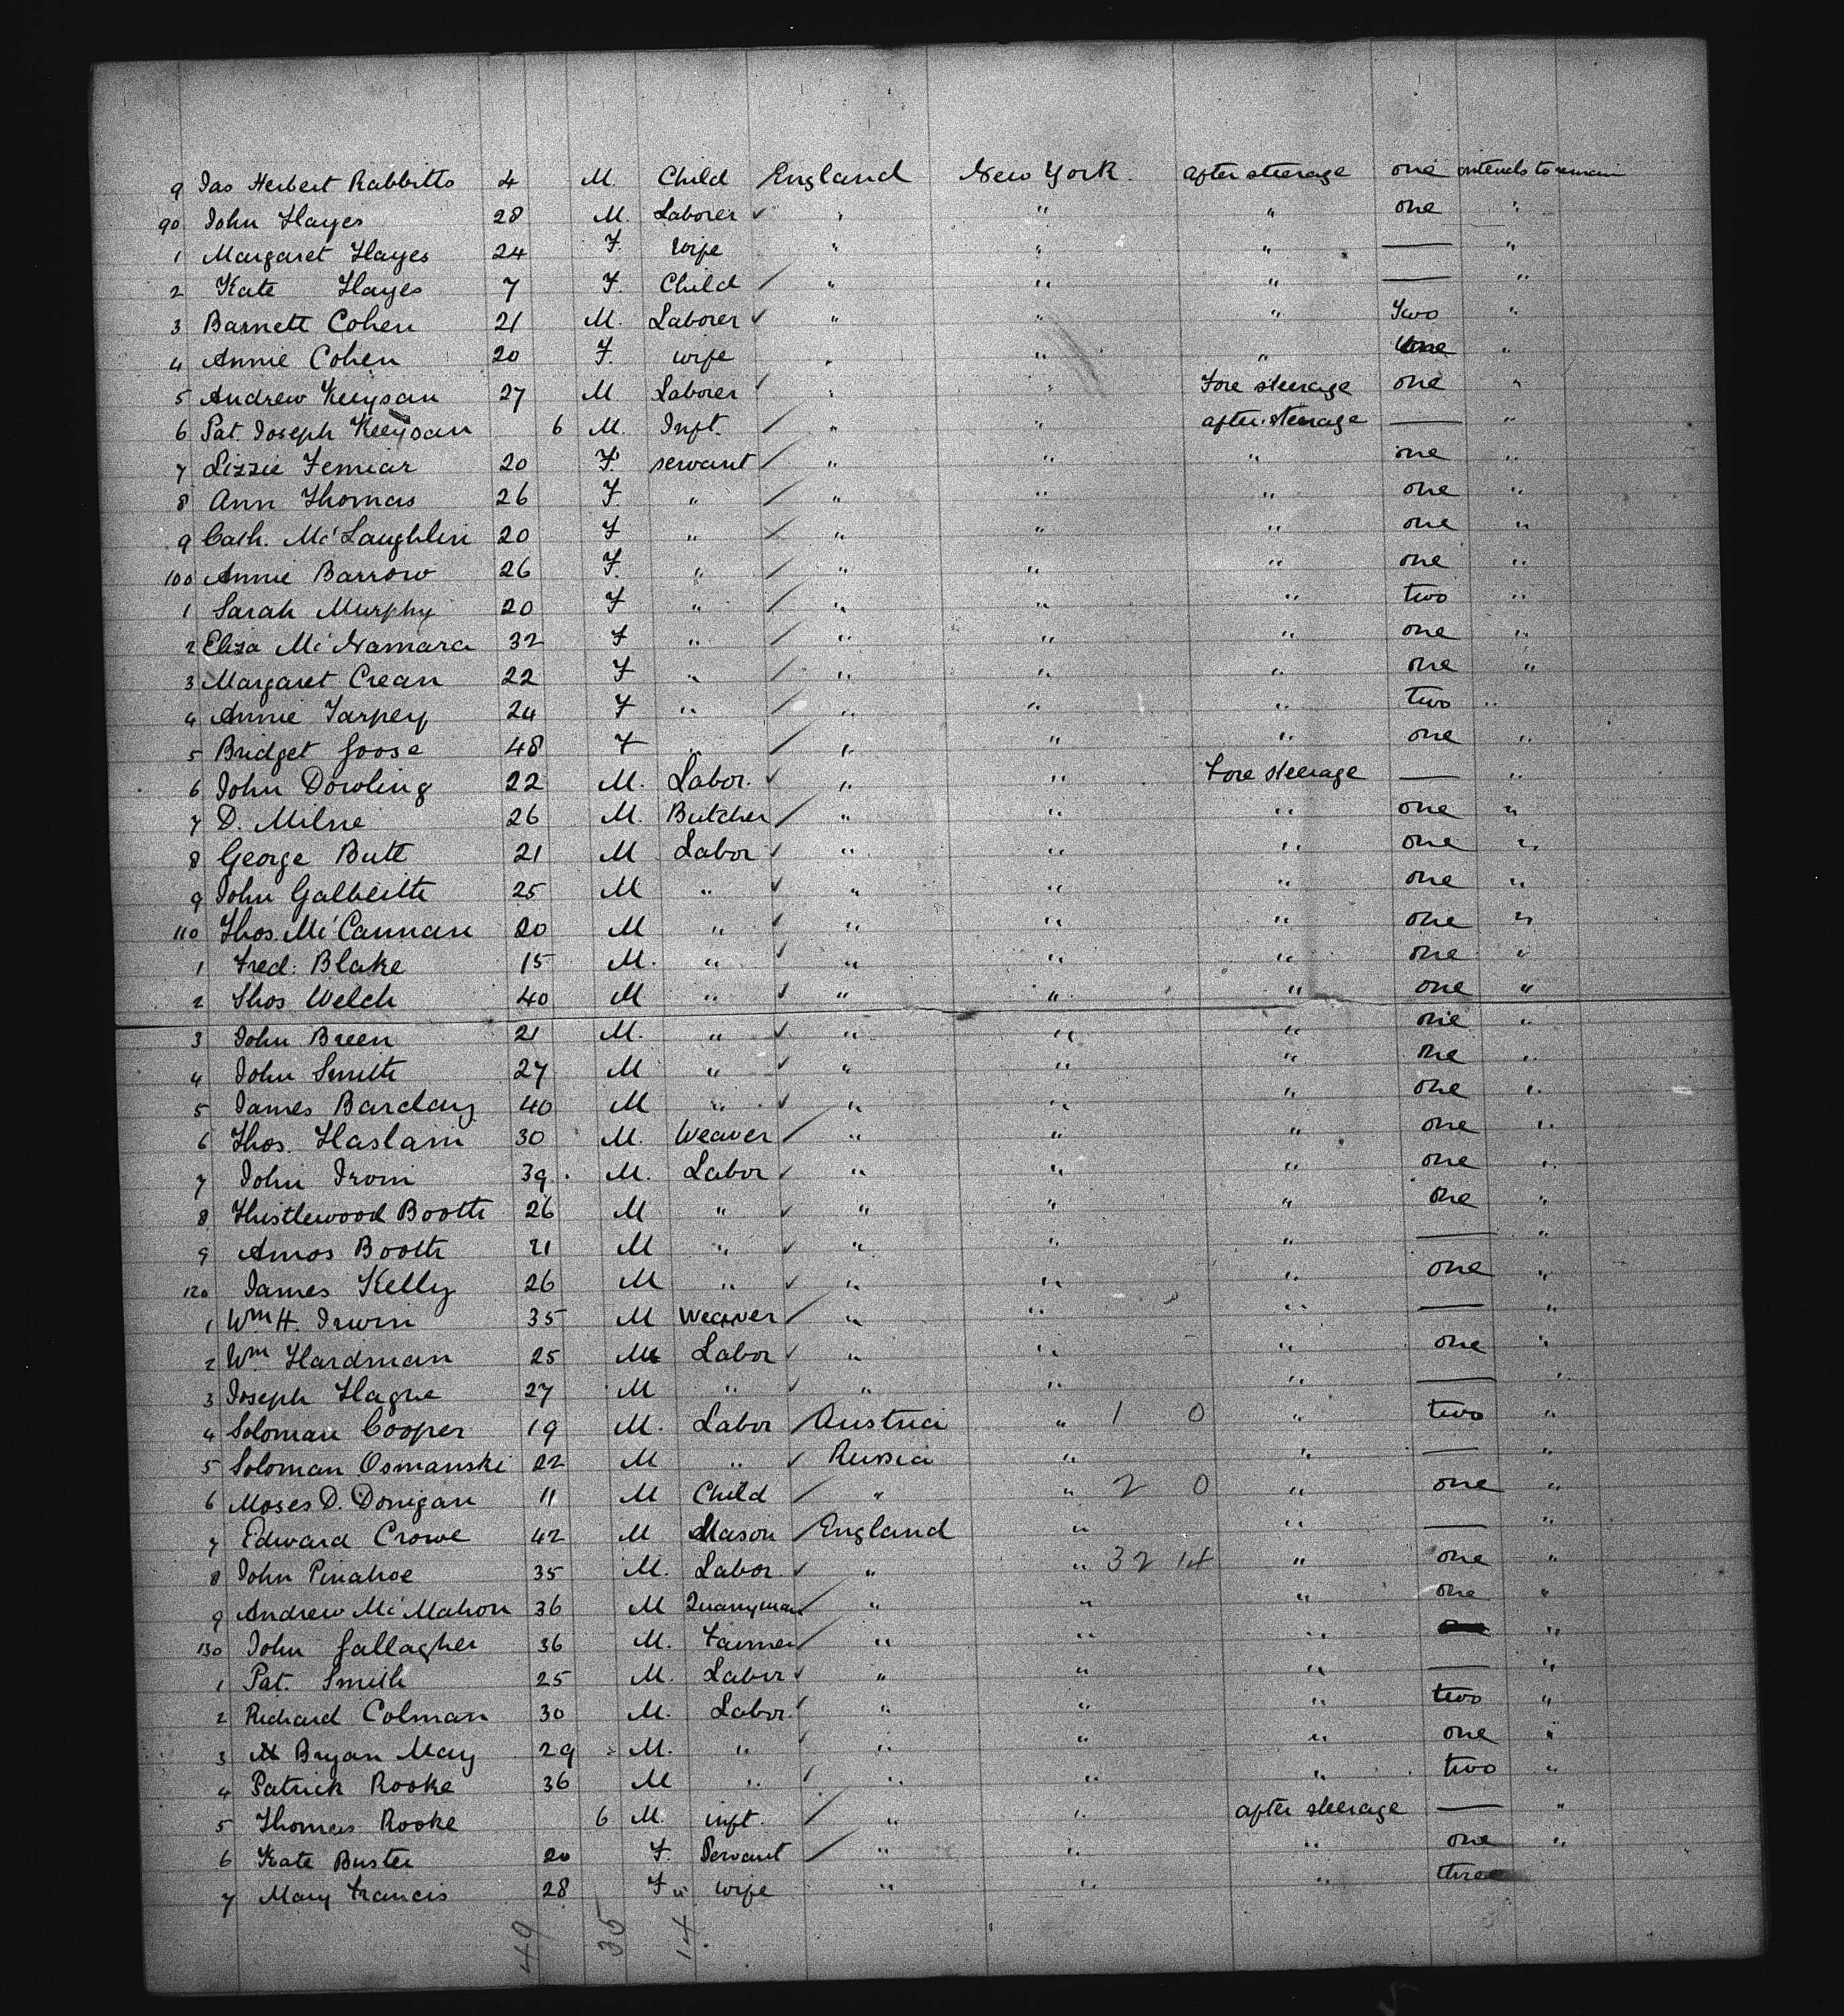 9 Jas Herbert Rabbitts 4 M. Child England New York. after steerage one intends to remain
90 John Hayes 28 M. Laborer ✓ " " " one "
1 Margaret Hayes 24 F. wife " " " — "
2 Kate Hayes 7 F. Child / " " " — "
3 Barnett Cohen 21 M. Laborer ✓ " " " Two "
4 Annie Cohen 20 F. wife " " " one "
5 Andrew Keeysan 27 M. Laborer ✓ " " Fore steerage one "
6 Pat. Joseph Keeysan 6 M. Inft. / " " after steerage — "
7 Lizzie Femiar 20 F servant / " " " one "
8 Ann Thomas 26 F. " / " " " one "
9 Cath. McLaughlin 20 F " / " " " one "
100 Annie Barrow 26 F. " / " " " one "
1 Sarah Murphy 20 F " / " " " two "
2 Eliza McNamara 32 F " / " " " one "
3 Margaret Crean 22 F " / " " " one "
4 Annie Tarpey 24 F " / " " " two "
5 Bridget Goose 48 F " / " " " one "
6 John Dowling 22 M. Labor. ✓ " " Fore steerage — "
7 D. Milne 26 M. Butcher / " " " one "
8 George Butt 21 M Labor ✓ " " " one "
9 John Galbeith 25 M " ✓ " " " one "
110 Thos. McCannan 20 M " ✓ " " " one "
1 Fred: Blake 15 M. " ✓ " " " one "
2 Thos Welch 40 M " ✓ " " " one "
3 John Breen 21 M. " ✓ " " " one "
4 John Smith 27 M " ✓ " " " one "
5 James Barclay 40 M " ✓ " " " one "
6 Thos. Haslam 30 M. Weaver / " " " one "
7 John Irvin 39. M. Labor ✓ " " " one "
8 Thistlewood Booth 26 M " ✓ " " " one "
9 Amos Booth 21 M " ✓ " " " — "
120 James Kelly 26 M " ✓ " " " one "
1 Wm H. Irwin 35 M Weaver / " " " — "
2 Wm Hardman 25 M Labor ✓ " " " one "
3 Joseph Hague 27 M " ✓ " " " — "
4 Soloman Cooper 19 M. Labor / Austria " 1 0 " two "
5 Soloman Osmanski 22 M " ✓ Russia " " — "
6 Moses D. Donigan 11 M Child / " " 2 0 " one "
7 Edward Crowe 42 M Mason / England " " — "
8 John Pinahoe 35 M. Labor ✓ " " 32 14 " one "
9 Andrew McMahon 36 M Quarryman / " " " one "
130 John Gallagher 36 M. Farmer / " " " "
1 Pat. Smith 25 M. Labor ✓ " " " — "
2 Richard Colman 30 M. Labor ✓ " " " two "
3 Bryan May 29 M. " ✓ " " " one "
4 Patrick Rooke 36 M " / " " " two "
5 Thomas Rooke 6 M. inft. / " " after steerage — "
6 Kate Buster 20 F. Servant / " " " one "
7 Mary Francis 28 F " wife " " " three
49 35 14